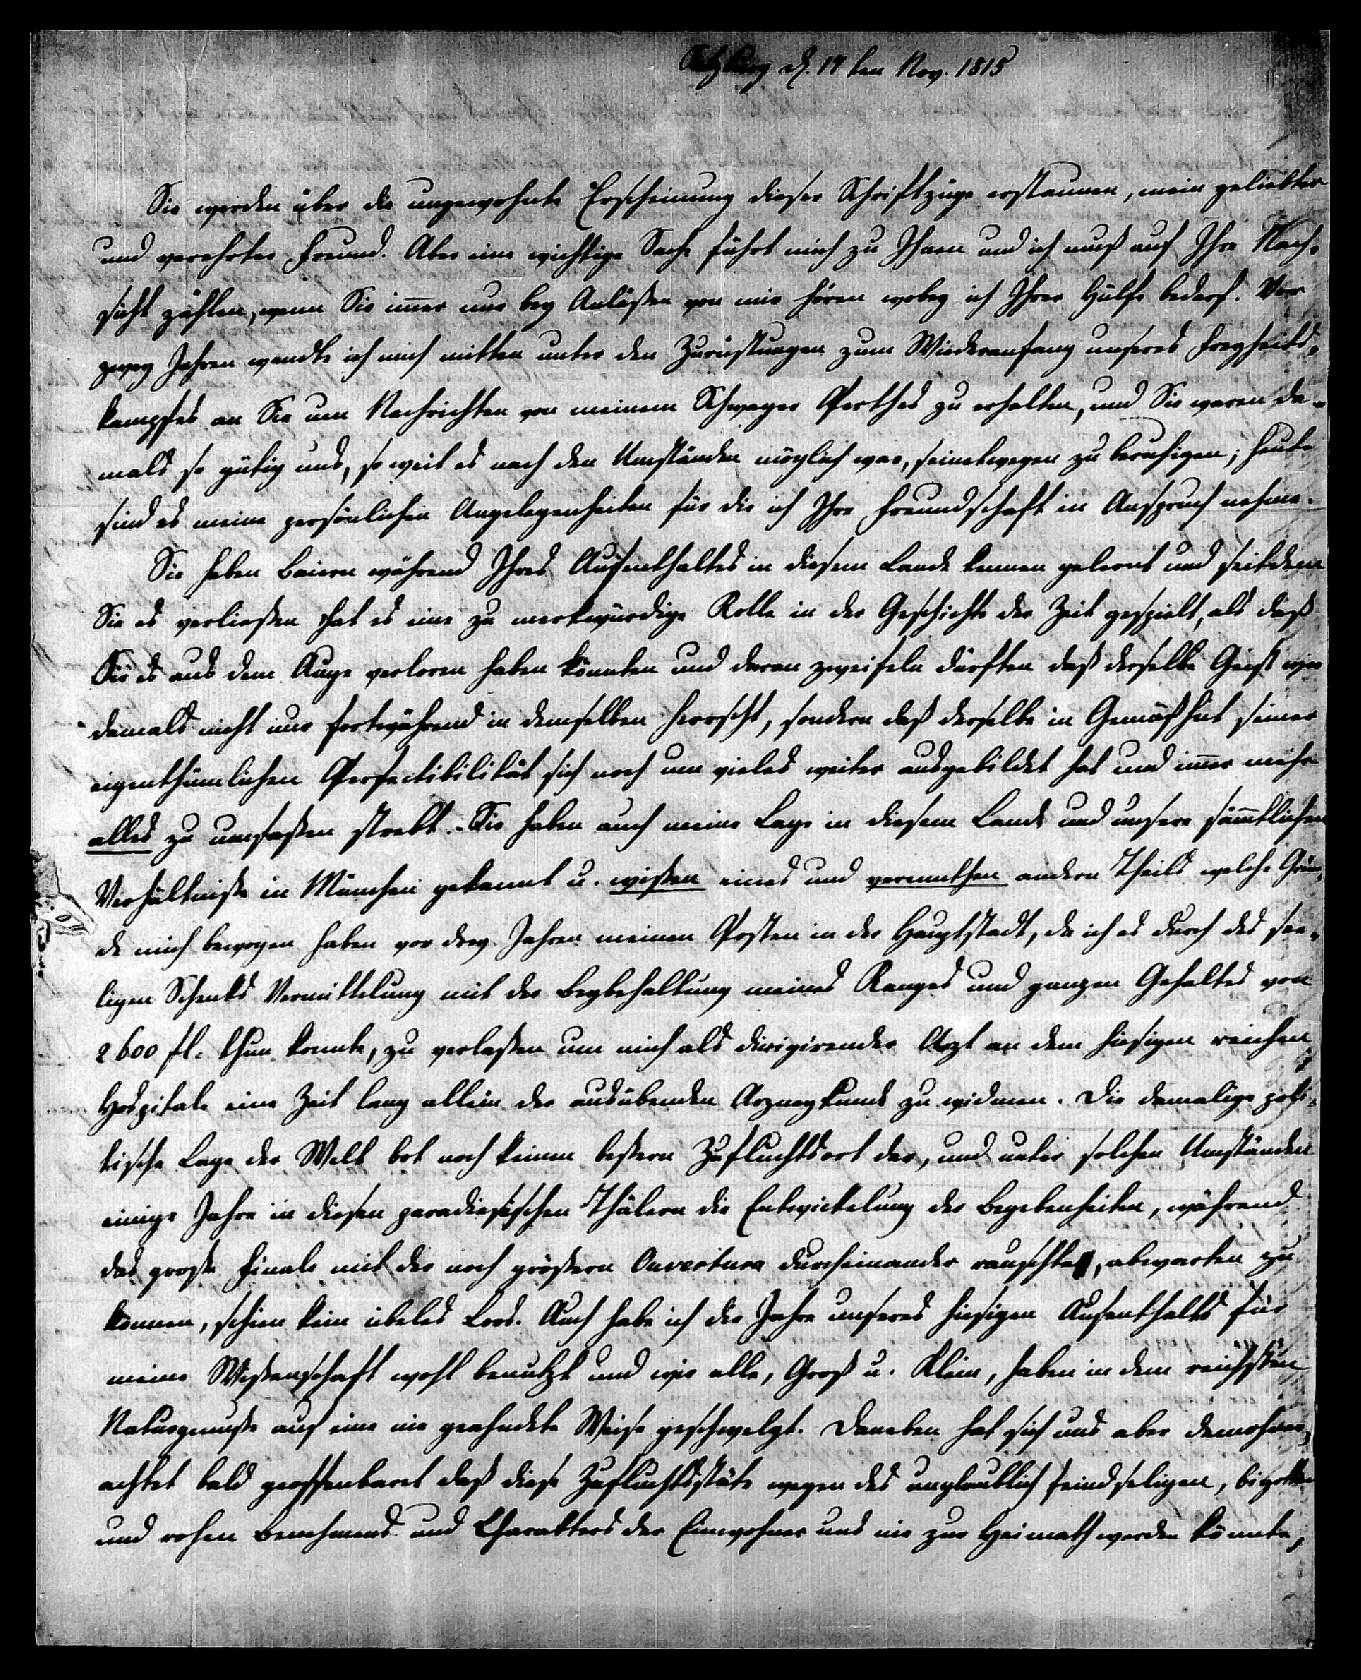 d. 14ten Nov. 1815
Sie werden über die ungewohnte Erscheinung dieser Schriftzüge erstaunen, mein geliebter
und verehrter Freund. Aber eine wichtige Sache führt mich zu Ihnen und ich muß auf Ihre Nach-
sicht zählen, wenn Sie im̄er nur bey Anläßen von mir hören wobey ich Ihrer Hülfe bedarf. Vor
zwey Jahren wandte ich mich mitten unter den Zurüstungen zum Wiederanfang unseres Freyheits-
kampfes an Sie um Nachrichten von meinem Schwager Perthes zu erhalten, und Sie waren da-
mals so gütig uns, so weit es nach den Umständen möglich war, seinetwegen zu beruhigen; heute
sind es meine persönlichen Angelegenheiten für die ich Ihre Freundschaft in Anspruch nehme.
Sie haben Baiern während Ihres Aufenthaltes in diesem Lande kennen gelernt und seitdem
Sie es verließen hat es eine zu merkwürdige Rolle in der Geschichte der Zeit gespielt, als daß
Sie es aus dem Auge verloren haben könnten und daran zweifeln dürften daß derselbe Geist wie
damals nicht nur fortwährend in demselben herrscht, sondern daß derselbe in Gemäßheit seiner
eigenthümlichen Perfectibilität sich noch um vieles weiter ausgebildet hat und im̄er mehr
alles zu umfaßen strebt. Sie haben auch meine Lage in diesem Lande und unsere säm̄tlichen
Verhältniße in München gekannt u. wißen eines und vermuthen andern Theils welche Grün-
de mich bewogen haben vor drey Jahren meinen Posten in der Hauptstadt, da ich es durch des see-
ligen Schenks Vermittelung mit der Beybehaltung meines Ranges und ganzen Gehaltes von
2600 fl. thun konnte, zu verlaßen um mich als dirigirender Arzt an dem hiesigen reichen
Hospitale eine Zeit lang allein der ausübenden Arzneykunde zu widmen. Die damalige poli-
tische Lage der Welt bot noch keinen beßern Zufluchtsort dar, und unter solchen Umständen
einige Jahre in diesen paradiesischen Thälern die Entwickelung der Begebenheiten, während
das große Finale mit der noch größern Ouverture durcheinander rauschte, abwarten zu
können, schien kein übeles Loos. Auch habe ich die Jahre unseres hiesigen Aufenthalts für
meine Wißenschaft wohl benutzt und wir alle, Groß u. Klein, haben in dem reichsten
Naturgenuße auf eine nie geahndete Weise geschwelgt. Daneben hat sich uns aber demohner-
achtet bald geoffenbaret daß diese Zufluchtsstäte wegen des unglaublich feindseligen, bigotten
und rohen Benehmens und Charakters der Einwohner uns nie zur Heimath werden könnte,